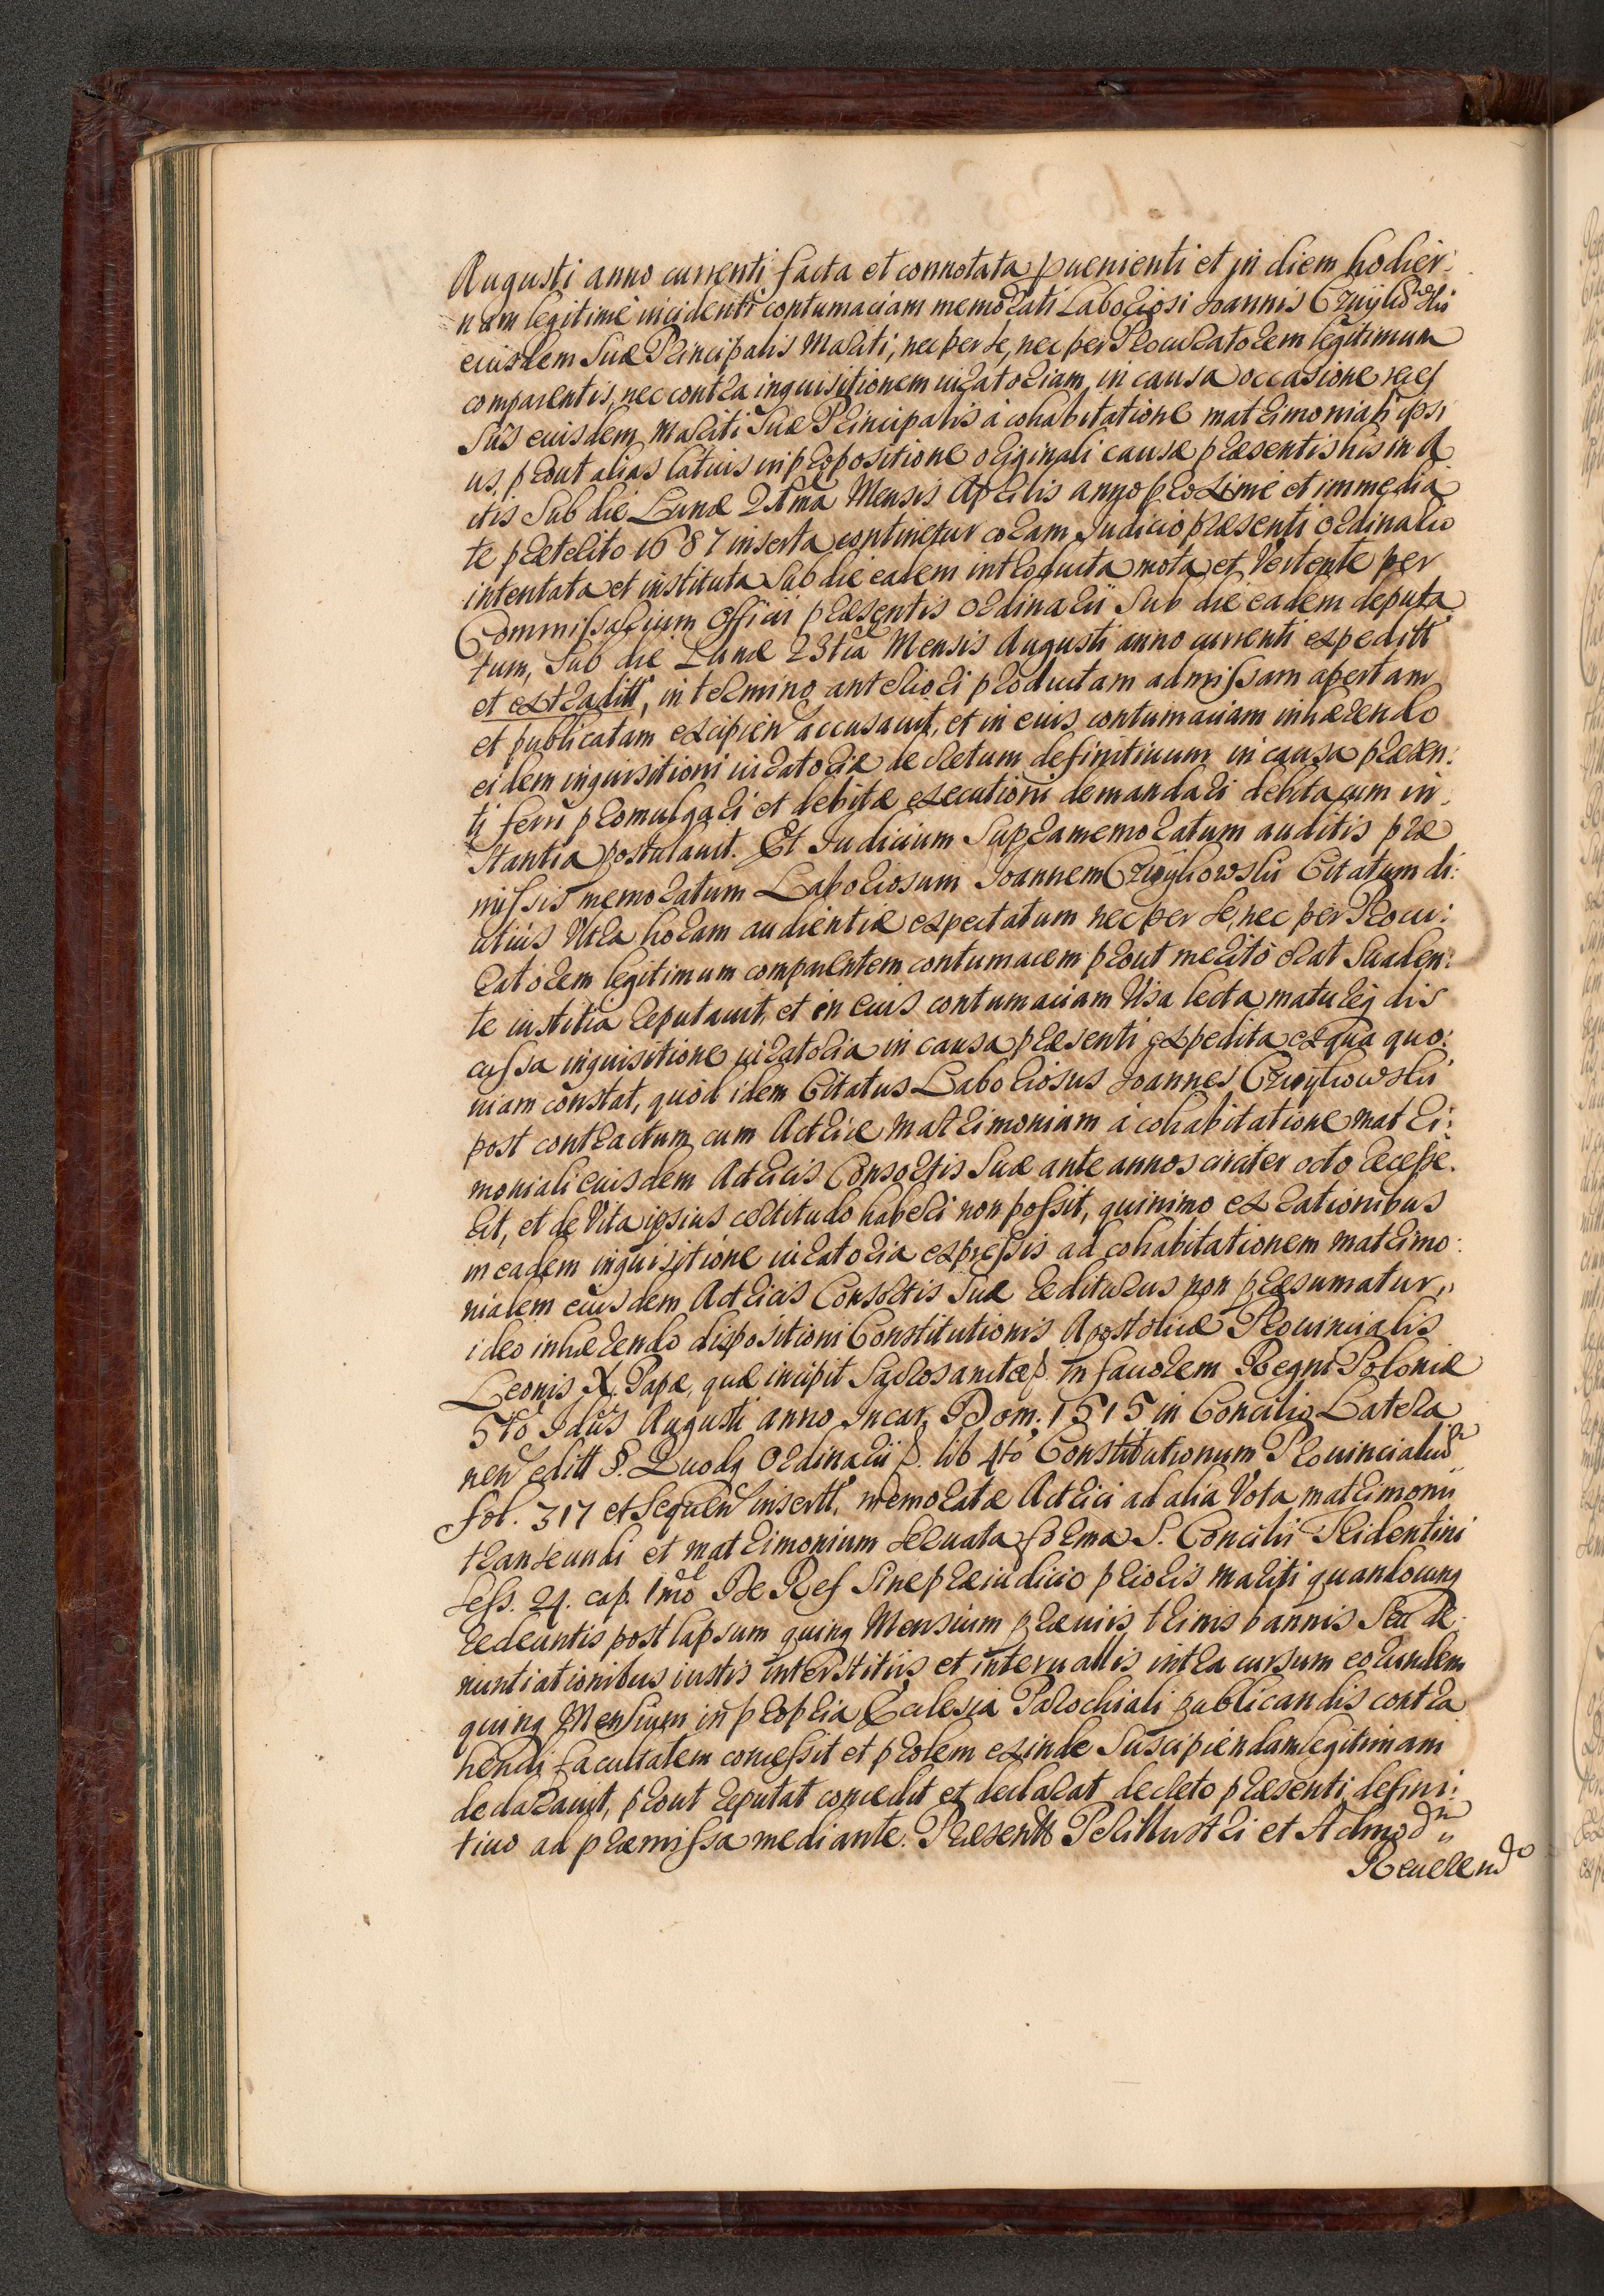 Augusti anno currenti facta et connotata puenienti et in diem hodier:
nam legitimè incidenti contumaciam memorati Laboriosi Joannis Czwykowski
eiusdem Suæ Principalis Mariti, nec per se, nec per Procuratorem legitimum
comparentis, nec contra inquisitionem iuratoriam, in causa occasione reces
sus eiusdem Mariti Suæ Principalis à cohabitatione matrimoniali ipsi
us, prout alias latius in propositione originali causæ præsentis his in A
ctis Sub die Lunæ 21ma Mensis Aprilis anno proximè et immedia
te præterito 1687 inserta continetur coram Judicio præsenti ordinario
intentata et instituta Sub die eadem introducta mota et Vertente per
Commissarium Officii præsentis Ordinarii Sub die eadem deputa
tum, Sub die Lunæ 23tia Mensis Augusti anno currenti expeditt
et extraditt, in termino anteriori productam admissam apertam
et publicatam excipien accusauit, et in eius contumaciam inhærendo
eidem inquisitioni iuratoriæ decretum definitiuum in causa præsen:
ti ferri promulgari et debitæ executioni demandari debita cum in
stantia postulauit. Et Judicium Supramemoratum auditis præ
missis memoratum Laboriosum Joannem Czwykowski Citatum di:
utius Vltra horam audientiæ expectatum nec per se, nec per Procu:
ratorem legitimum comparentem contumacem prout meritò erat Suaden:
te iustitia reputauit, et in eius contumaciam Visa lecta matureq dis
cussa inquisitione iuratoria in causa præsenti expedita ex qua quo:
niam constat, quòd idem Citatus Laboriosus Joannes Czwykowski
post contractum cum Actrice matrimonium à cohabitatione matri:
moniali eiusdem Actricis Consortis Suæ ante annos circiter octo recesse:
rit, et de Vita ipsius certitudo haberi non possit, quinimo ex rationibus
in eadem inquisitione iuratoria expressis ad cohabitationem matrimo:
nialem eiusdem Actricis Consortis Suæ rediturus non præsumatur,
ideo inhærendo dispositioni Constitutionis Apostolicæ Prouincialis
Leonis X. Papæ, quæ incipit Sacrosanctæ p. in fauorem Regni Poloniæ
5to Idus Augusti anno Incar. Dom. 1515 in Concilio Latera
nen editt §. Quodq Ordinarii p. lib 4to Constitutionum Prouincialiu
fol. 317 et Sequen insertt, memoratæ Actrici ad alia Vota matrimonii
transeundi et matrimonium seruata forma S. Concilii Tridentini
sess. 24. cap. 1mo De Ref Sine præiudicio prioris mariti quandocunq
redeuntis post lapsum quinq Mensium præuiis trinis bannis Seu de:
nuntiationibus iustis interstitiis et interuallis intra cursum eorundem
quinq Mensium in propria Ecclesia Parochiali publicandis contra
hendi facultatem concessit et prolem exinde Suscipiendam legitimam
declarauit, prout reputat concedit et declarat decreto præsenti defini:
tiuo ad præmissa mediante. Præsentt Perillustri et Admod
Reuerendo